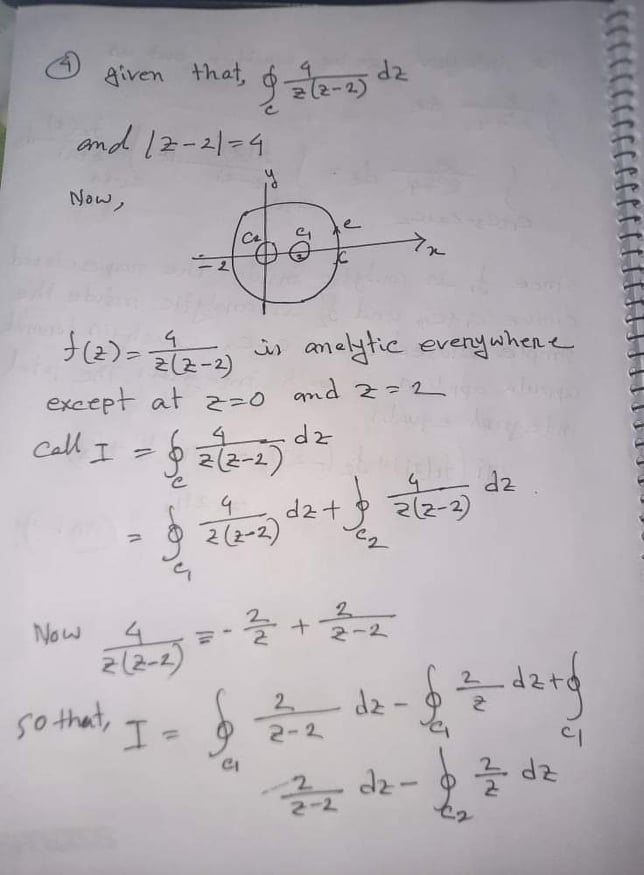 ④ given that, ∮_c 4/(z(z-2)) dz
and |z-2|=4
Now,
y
C₂ C₁ c
-2 2 C x
f(z)= 4/(z(z-2)) is analytic everywhere
except at z=0 and z=2
Call I = ∮_c 4/(z(z-2)) dz
= ∮_c₁ 4/(z(z-2)) dz + ∮_c₂ 4/(z(z-2)) dz.
Now 4/(z(z-2)) ≡ -2/z + 2/(z-2)
so that, I = ∮_c₁ 2/(z-2) dz - ∮_c₁ 2/z dz + ∮_c₁
2/(z-2) dz - ∮_c₂ 2/z dz